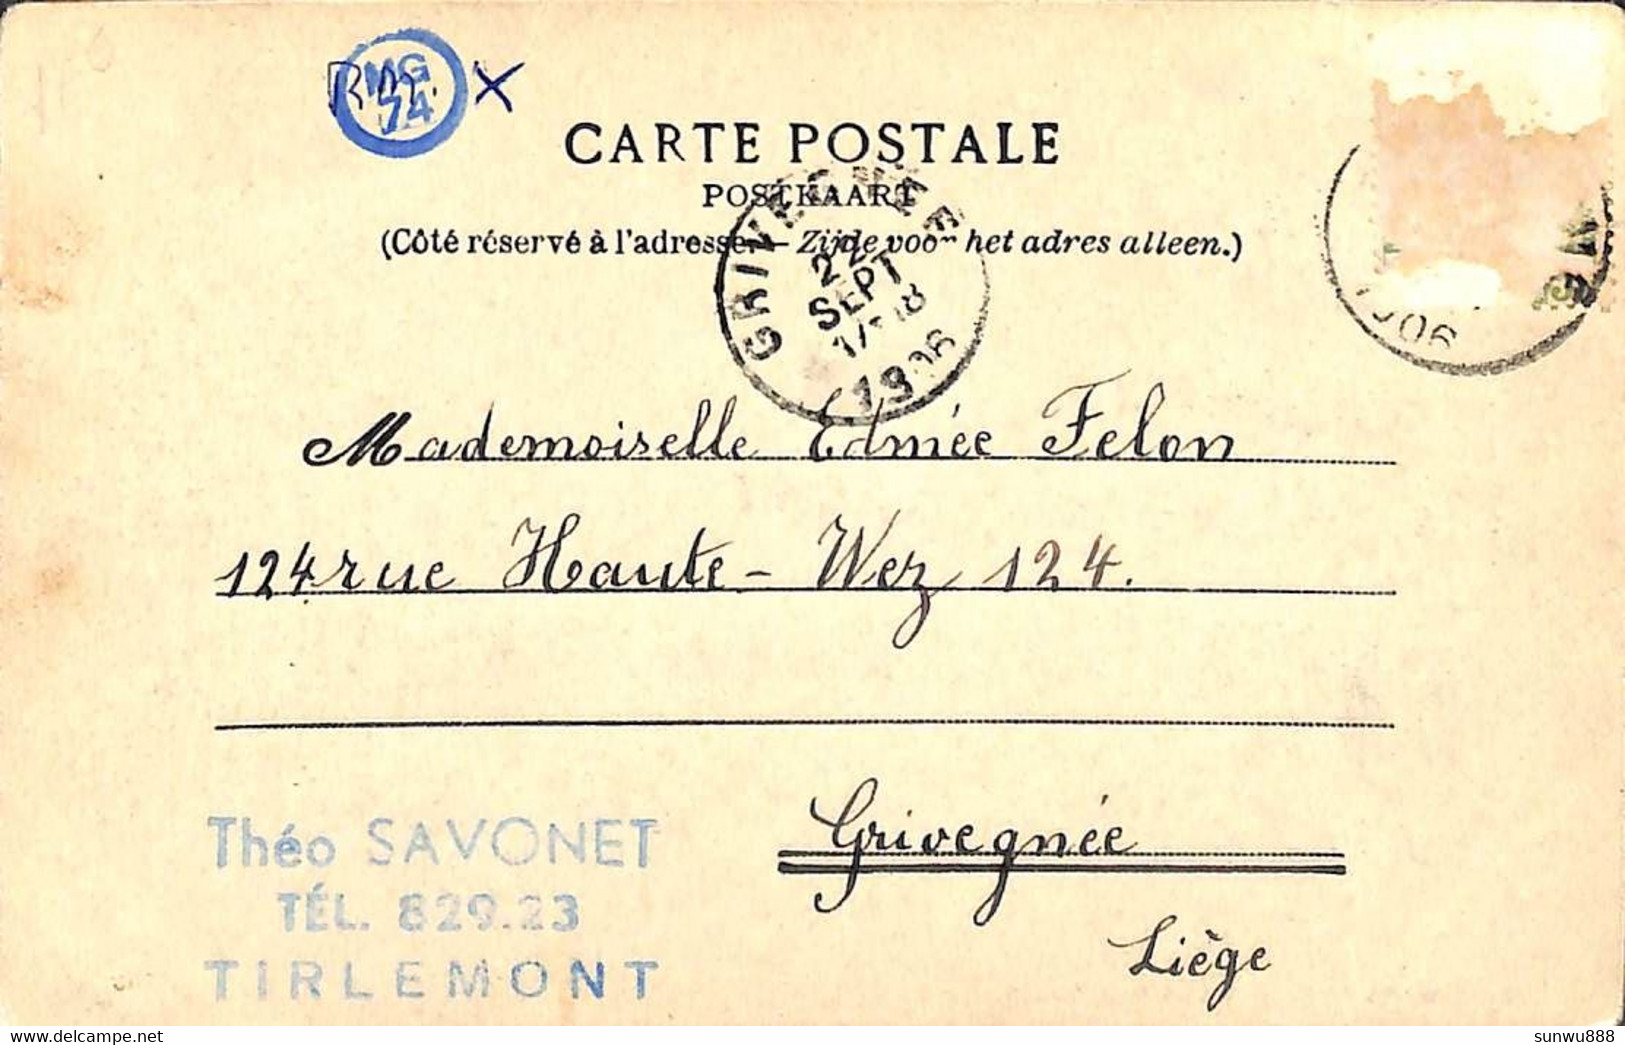 MG
74
X
CARTE POSTALE
POSTKAART
(Côté réservé à l'adresse. — Zijde voor het adres alleen.)
GRIVEGNEE
22
SEPT
17-18
1906
1906
Mademoiselle Edmée Felon
124 rue Haute-Wez 124.
Grivegnée
Liège
Théo SAVONET
TÉL. 829.23
TIRLEMONT
sunwu888